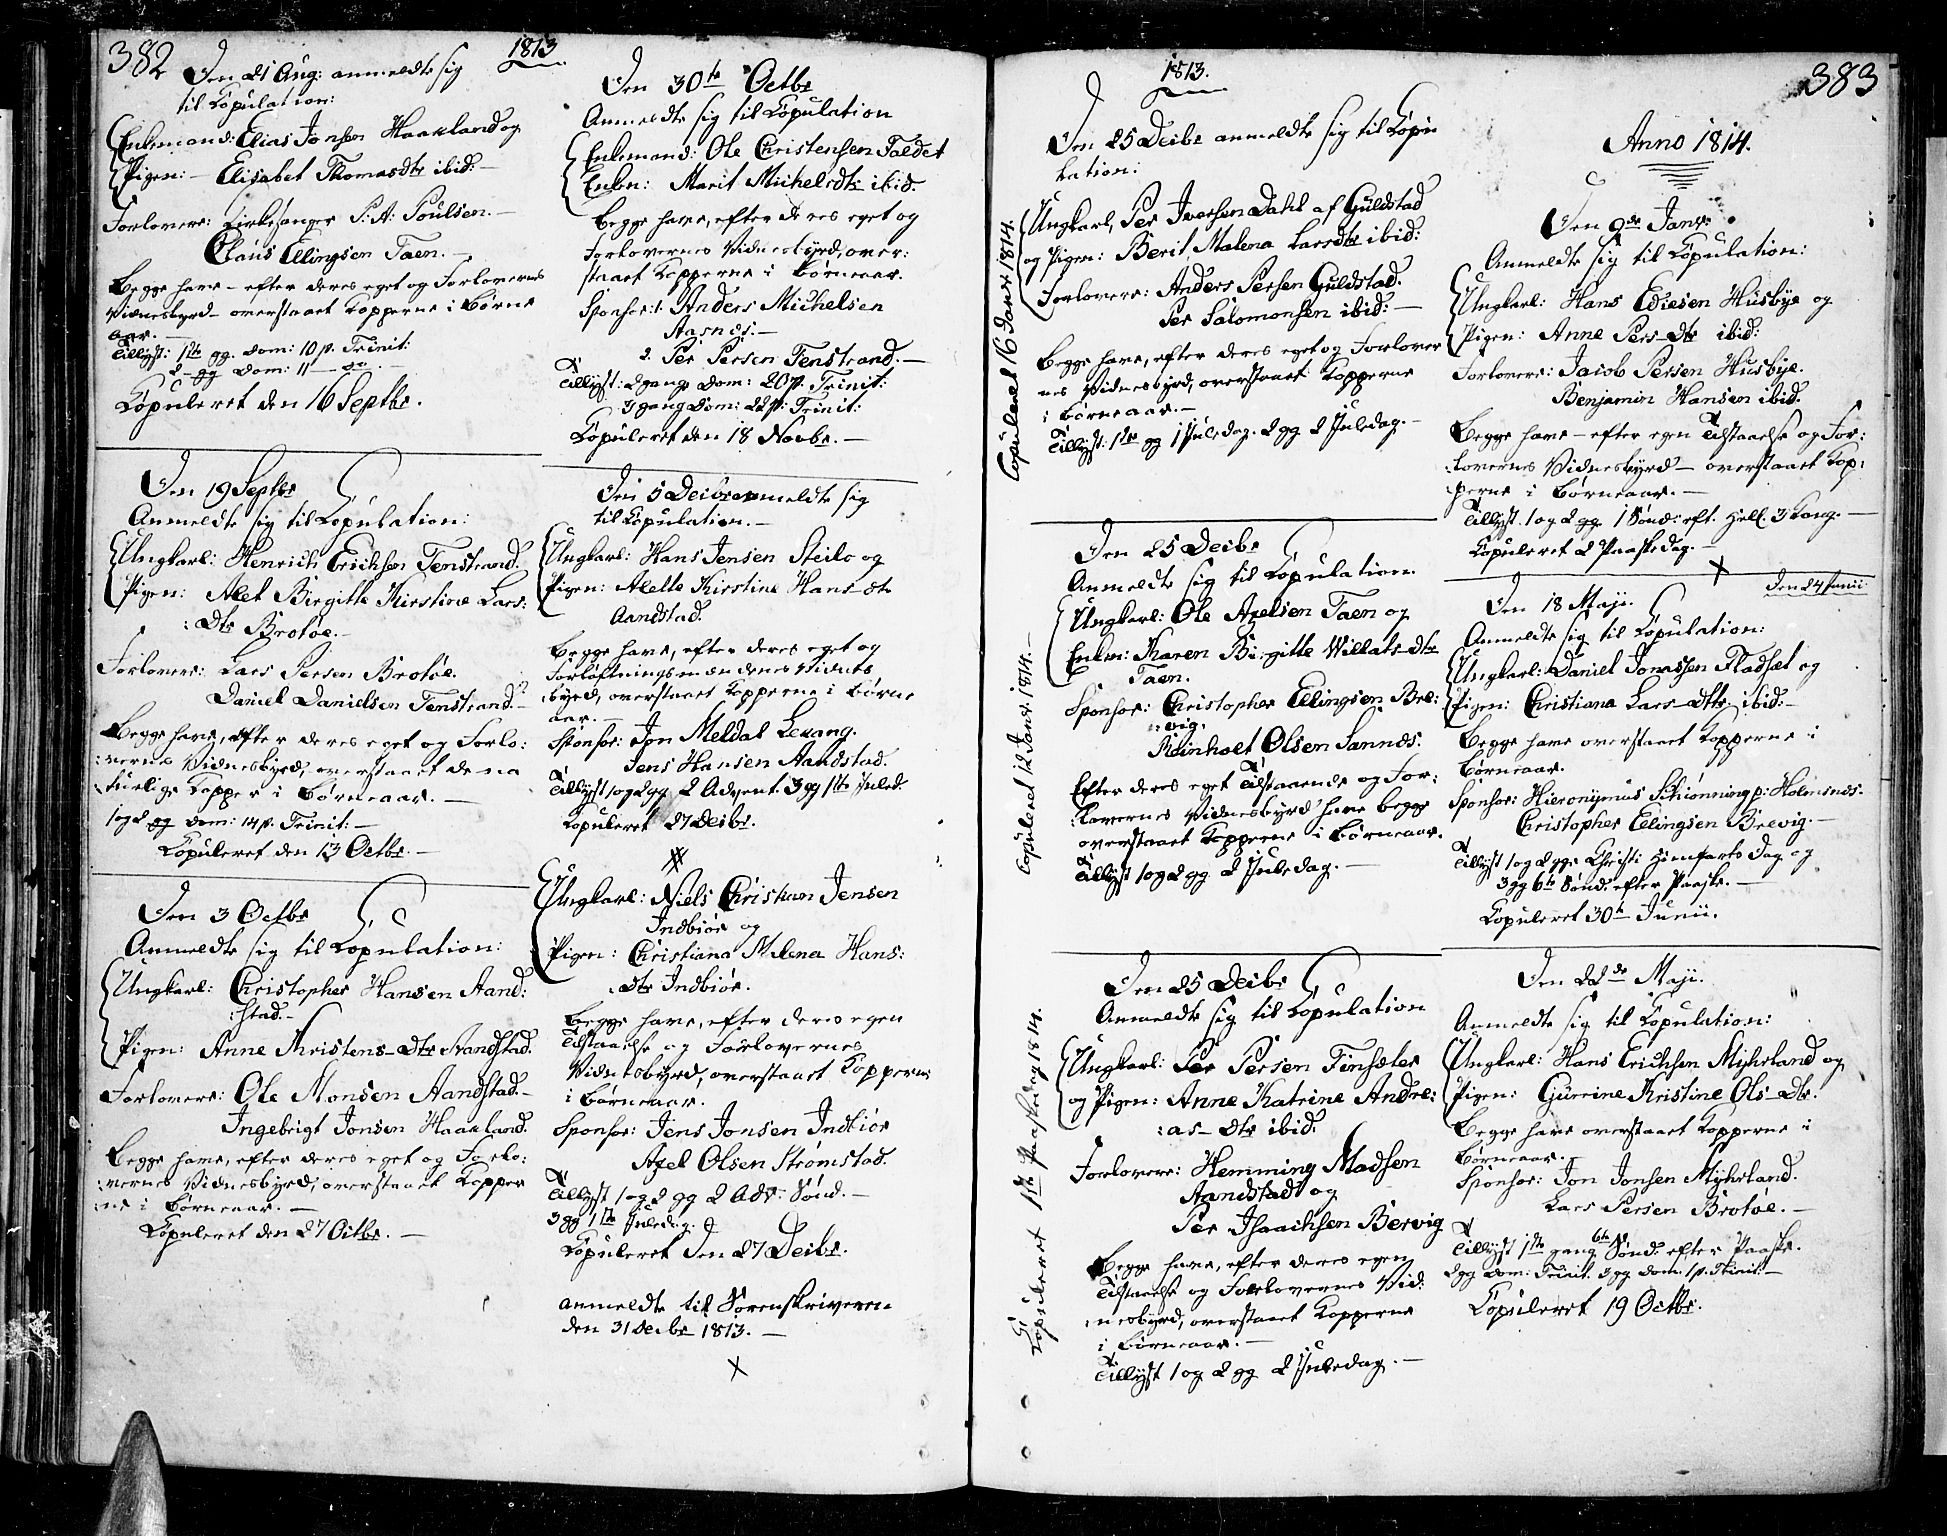 382
1813
Den 21 Aug: anmeldte sig
til Copulation:
Enkemand: Elias Jonsen Haakland og
Pigen: - Elisabet Thomasdtr ibid: -
Forlovere: Kirkesanger P: A: Poulsen. -
Claus Ellingsen Taen. -
Begge have - efter deres eget og Forlovernes
Vidnesbyrd - overstaaet Kopperne i Børne
aar. -
Tillyst: 1ste gg. Dom: 10 p. Trinit:
2 - gg Dom: 11 - do -
Copuleret den 16 Septbr.
Den 19 Septbr
Anmeldte sig til Copulation:
Ungkarl: Henrich Erichsen Tenstrand.
Pigen: Alet Birgitte Kirstine Lars:
:Dtr Brotøe. -
Forlover: Lars Persen Brotøe.
Daniel Danielsen Tenstrand. -
Begge have, efter deres eget og Forlo:
:vernes Vidnesbyrd, overstaaet de na
:turlige Kopper i Børneaar. -
1 og 2 gg Dom: 14 p. Trinit: -
Copuleret den 13 Octbr. -
Den 3 Octbr
Anmeldte sig til Copulation:
Ungkarl: Christopher Hansen Aand:
:stad. -
Pigen: Anne Kristens-Dtr Aandstad.
Forlovere: Ole Monsen Aandstad. -
Ingebrigt Jonsen Haakland.
Begge have, efter deres eget og Forlo:
:vernes Vidnesbyrd, overstaaet Kopper
:ne i Børneaar. -
Copuleret den 27 Octbr. -
Den 30te Octbr
Anmeldte sig til Copulation
Enkemand: Ole Christensen Faldet
Enken: Marit Michelsdtr ibid.
Begge have, efter deres eget og
Forlovernes Vidnesbyrd, over:
staaet Kopperne i Børneaar.
Sponsor: 1. Anders Michelsen
Aasnæs: -
2. Per Persen Tenstrand. -
Tillyst: 2 gang Dom: 20 p. Trinit:
3 gang Dom: 22 p: Trinit:
Copuleret den 18 Novbr. -
Den 5 Decbr anmeldte sig
til Copulation. -
Ungkarl: Hans Jensen Steilo og
Pigen: Alette Kirstine Hans dtr
Aandstad.
Begge have, efter deres eget og
Forløftningsmændenes Vidnes
byrd, overstaaet Kopperne i Børne
aar. -
Sponsor: Jon Meldal Lekang.
Jens Hansen Aandstad.
Tillyst 1 og 2 gg 2 Advent. 3 gg 1ste Juled.
Copuleret 27 Decbr.
Ungkarl: Niels Christian Jensen
Indbiør og
Pigen: Christiana Malena Hans:
:Dtr Indbiør.
Begge have, efter deres egen
Tilstaaelse og Forlovernes
Vidnesbyrd, overstaaet Kopperne
i Børneaar.
Sponsor: Jens Jonsen Indbiør
Axel Olsen Strømstad.
Tillyst 1 og 2 gg 2 Adv: Sønd. -
3 gg 1ste Juledag.
Copuleret den 27 Decbr.
anmeldte til Sorenskriveren
den 31 Decbr 1813. -
383
1813.
Den 25 Decbr anmeldte sig til Copu
lation:
Ungkarl, Per Iversen Dahl af Guldstad
og Pigen: Berit Malena Larsdtr ibid:
Forlovere: Anders Persen Guldstad.
Per Salomonsen ibid: -
Begge have, efter deres eget og Forlover
nes Vidnesbyrd, overstaaet Kopperne
i Børneaar. -
Tillyst: 1ste gg 1 Juledag. 2 gg 2 Juledag. -
Copuleret 16 Janr 1814.
Den 25 Decbr
Anmeldte sig til Copulation.
Ungkarl: Ole Axelsen Taen og
Enken: Karen Birgitte Willats-dtr
Taen.
Sponsor: Christopher Ellingsen Bre:
:vig.
Reinholt Olsen Sannes.
Efter deres eget Tilstaaende og For:
:lovernes Vidnesbyrd have begge
overstaaet Kopperne i Børneaar.
Tillyst 1 og 2 gg 2 Juledag. -
Copuleret 12 Janr. 1814. -
Den 25 Decbr
Anmeldte sig til Copulation
Ungkarl: Per Persen Finsæter
og Pigen: Anne Katrine Andre:
:as-Dtr ibid.
Forlovere: Hemming Madsen
Aandstad og
Per Isaachsen Bervig
Begge have, efter deres egen
Tilstaaelse og Forlovernes Vid:
:nesbyrd, overstaaet Kopperne
i Børneaar. -
Tillyst 1 og 2 gg 2 Juledag. -
Copuleret 1ste Paaskedag 1814.
Anno 1814.
Den 9de Janr.
Anmeldte sig til Copulation:
Ungkarl: Hans Ediesen Husbye og
Pigen: Anne Pers-Dtr ibid:
Forlovere: Jacob Persen Husbye.
Benjamin Hansen ibid.
Begge have - efter egen Tilstaaelse og For:
:lovernes Vidnesbyrd - overstaaet Kop:
:perne i Børneaar. -
Tillyst. 1 og 2 gg 1 Sønd: eft. Hell. 3 Kong. -
Copuleret 2 Paaskedag. -
Den 24 Junii
Den 18 Maji.
Anmeldte sig til Copulation:
Ungkarl: Daniel Jonassen Fladsæt og
Pigen: Christiana Lars-Dtr. ibid: -
Begge have overstaaet Kopperne i
Børneaar.
Sponsor: Hieronymus Schiønning p: Holmsnæs.
Christopher Ellingsen Brevig. -
Tillyst 1 og 2 gge Christi Himfarts Dag og
3 gg 6te Sønd: efter Paaske. -
Copuleret 30te Junii.
Den 22de Maji.
Anmeldte sig til Copulation:
Ungkarl: Hans Erichsen Myhrland og
Pigen: Gurrine Kristine Ols-Dtr.
Begge have overstaaet Kopperne i
Børneaar. -
Sponsor: Jon Jonsen Myhrland.
Lars Persen Brotøe. -
Tillyst 1ste gang 6te Sønd: efter Paaske.
2 gg Dom: Trinit. 3 gg Dom. 1 p. Trinit: -
Copuleret 19 Octbr.